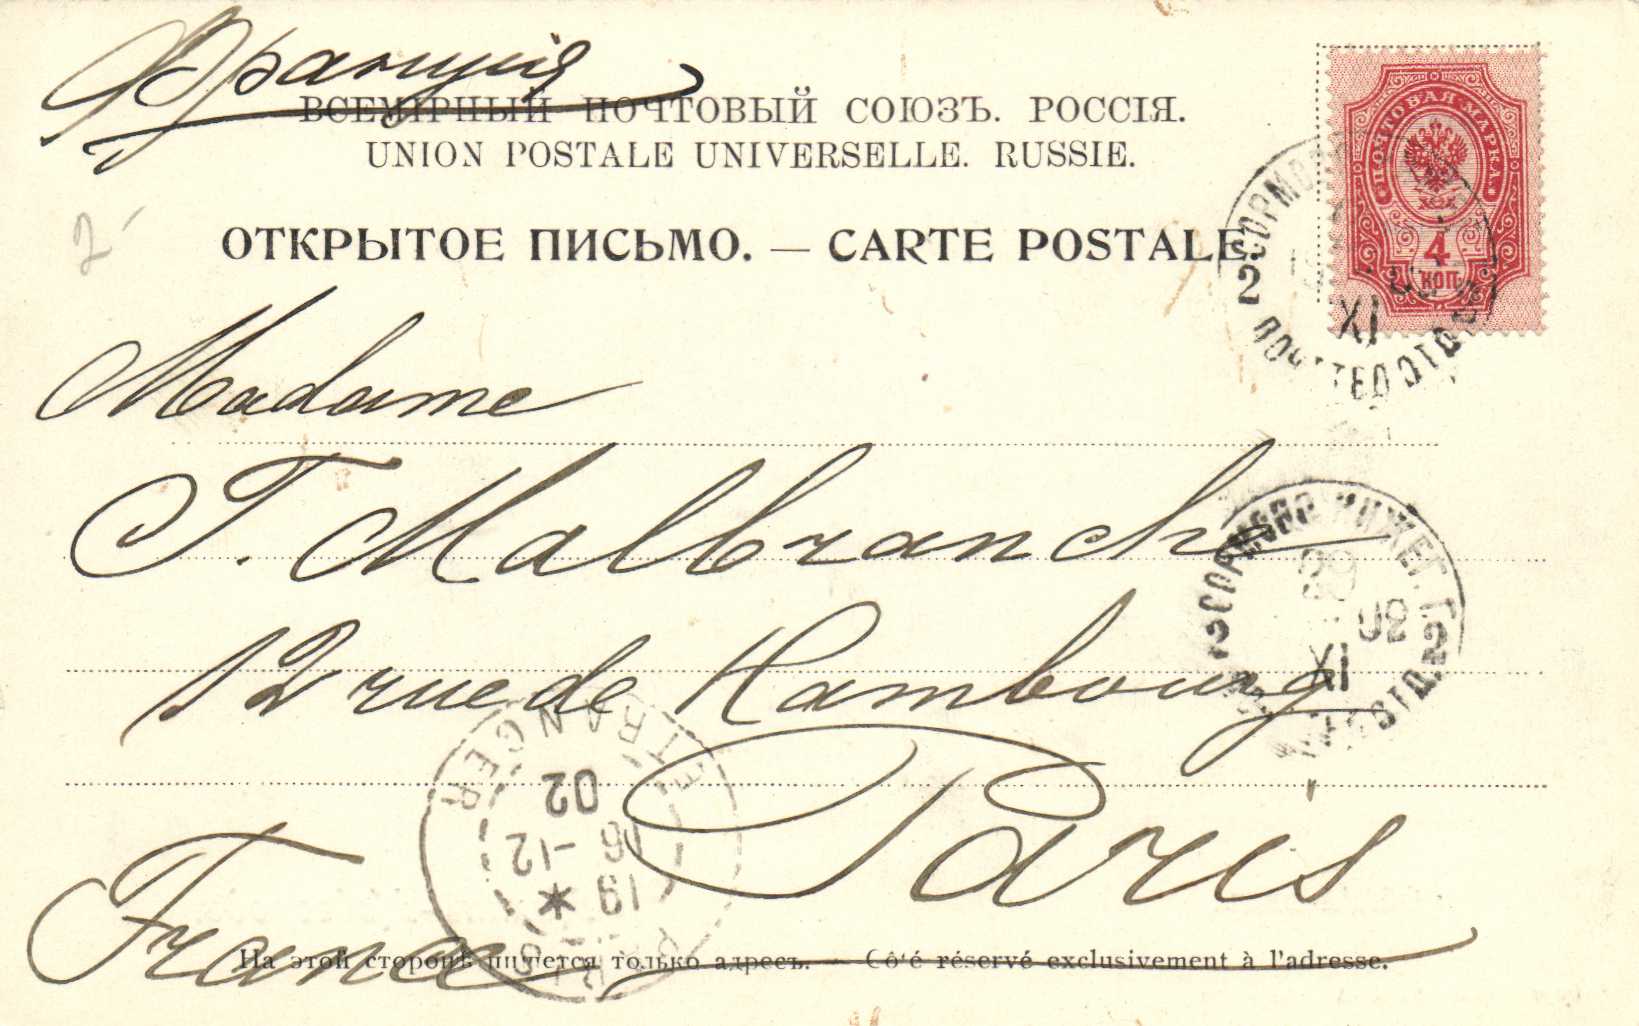 Франція
ВСЕМІРНЫЙ ПОЧТОВЫЙ СОЮЗЪ. РОССІЯ.
UNION POSTALE UNIVERSELLE. RUSSIE.
ОТКРЫТОЕ ПИСЬМО. — CARTE POSTALE.
ПОЧТОВАЯ МАРКА
4
КОП.
2
XI
2-
Madame
T. Malbranche
12 rue de Hambourg
Paris
France
СОРМОВО НИЖЕГ. Г.
02
XI
2
ETRANGER
02
16 -12
19 *
PARIS
На этой сторонѣ пишется только адресъ. — Côté réservé exclusivement à l'adresse.